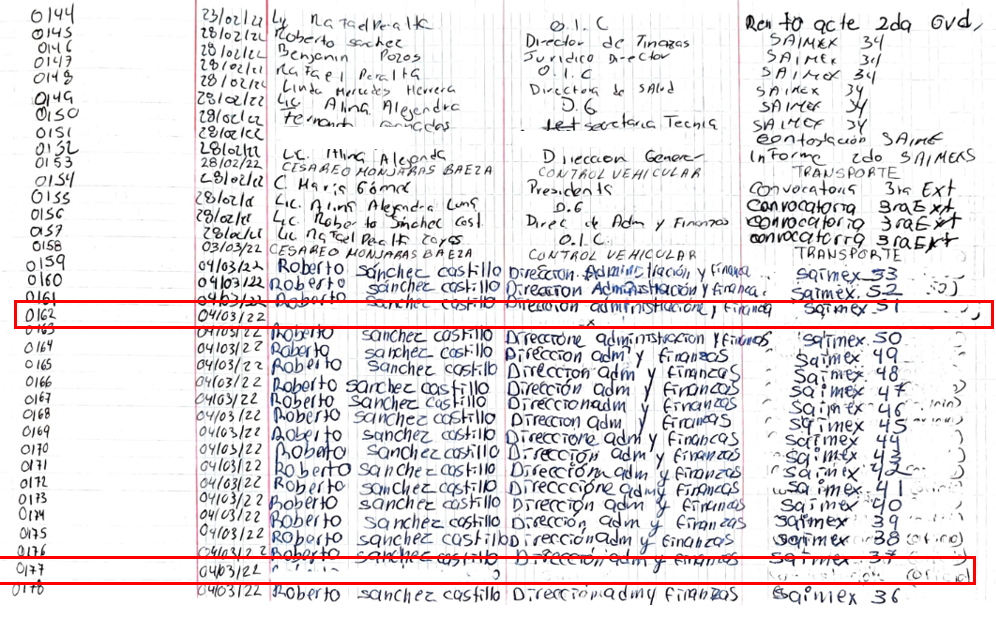 0144 23/02/22 Lic Rafael Peralta O.I.C Ren to acte 2da Gvd,
0145 28/02/22 Roberto sanchez Director de Finazas SAIMEX 34
0146 28/02/22 Benjamin Pozos Juridico Director SAIMEX 34
0147 28/02/22 Rafael Peralta O.I.C SAIMEX 34
0148 28/02/22 Linda Mercedes Herrera Directora de SAlud SAIMEX 34
0149 28/02/22 Lic. Alina Alejandra D.G SAIMEX 34
0150 28/02/22 Fernando secretaria Tecnia SAIMEX 34
0151 28/02/22 contestación SAIME
0152 28/02/22 Lic. Alina Alejanda Direccion General Informe 2do SAIMEXS
0153 28/02/22 CESAREO MONJARAS BAEZA CONTROL VEHICULAR TRANSPORTE
0154 28/02/22 C. Maria Gómez Presidenta Convocatoria 3ra Ext
0155 28/02/22 Lic. Alina Alejandra Luna D.G convocatorra 3raExt
0156 28/02/22 Lic. Roberto Sánchez Cast. Direc de Adm y Finanzas convocatorra 3raExt
0157 28/02/22 Lic Rafael Peralta O.I.C. convocatorra 3raExt
0158 03/03/22 CESAREO MONJARAS BAEZA CONTROL VEHICULAR TRANSPORTE
0159 04/03/22 Roberto sánchez castillo Direccion Administración y Finanza saimex 53
0160 04/03/22 Roberto sánchez castillo Direccion Administración y Finanza saimex 52
0161 04/03/22 Roberto sanchez castillo Direccion administracione y Finanza saimex 51
0162 04/03/22
0163 04/03/22 Roberto sanchez castillo Direccione administracion y Finanzas saimex 50
0164 04/03/22 Roberto sanchez castillo Direccion adm y Finanzas saimex 49
0165 04/03/22 Roberto sanchez castillo Dirección adm y Finanzas saimex 48
0166 04/03/22 Roberto sanchez castillo Dirección adm y Finanzas saimex 47
0167 04/03/22 Roberto sanchez castillo Direccionadm y Finanzas saimex 46
0168 04/03/22 Roberto sanchez castillo Dirección adm y Finanzas saimex 45
0169 04/03/22 Roberto sanchez castillo Direccione adm y Financas saimex 44
0170 04/03/22 Roberto sanchez castillo Dirección adm y Finanzas saimex 43
0171 04/03/22 Roberto sanchez castillo Direcciona adm y Finanzas saimex 42
0172 04/03/22 Roberto sanchez castillo Direcccióne adm y Finanzas saimex 41
0173 04/03/22 Roberto sanchez castillo Direccion adm y Finanzas saimex 40
0174 04/03/22 Roberto sanchez castillo Dirección adm y Finanzas saimex 39
0175 04/03/22 Roberto sanchez castillo Direcciónadm y Finanzas saimex 38
0176 04/03/22 Roberto sanchez castillo Dirección adm y Finanzas saimex 37
0177 04/03/22
0178 04/03/22 Roberto sanchez castillo Direcciónadmy Finanzas saimex 36